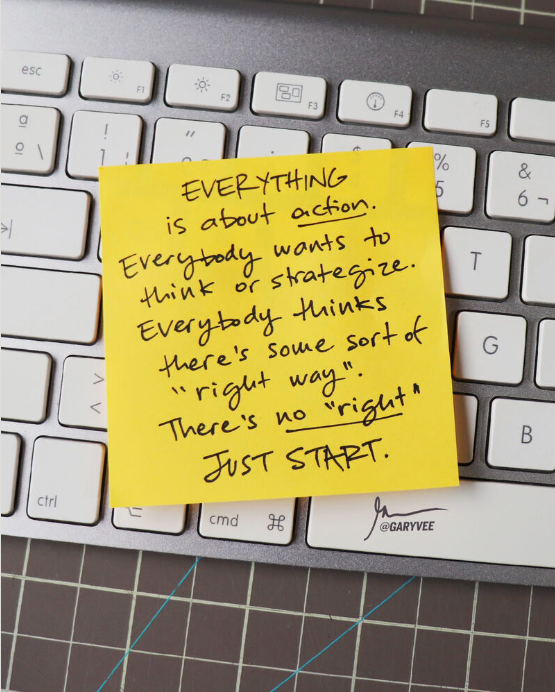 esc
F1
F2
F3
F4
F5
ª
º \
!
1
"
$
%
5
&
6 ¬
EVERYTHING
is about action.
Everybody wants to
think or strategize.
Everybody thinks
there's some sort of
"right way".
There's no "right"
JUST START.
T
G
>
<
B
ctrl
cmd ⌘
@GARYVEE